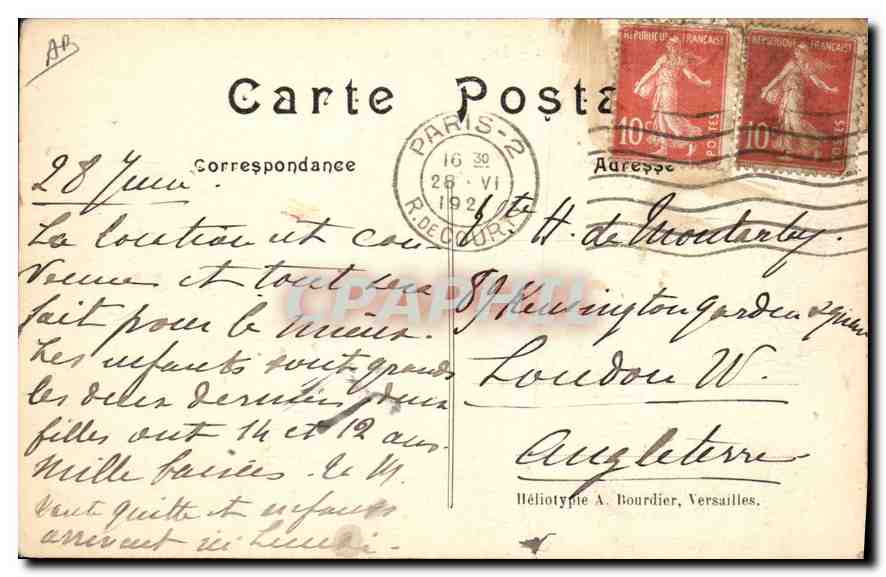 AB
Carte Posta
Correspondance
Adresse
REPUBLIQUE FRANÇAISE
10 c
POSTES
REPUBLIQUE FRANÇAISE
10
POSTES
PARIS-2
16 30
28 VI
192
R. DE COUR
28 Juin.
La location est con-
venue et tout sera
fait pour le mieux.
Les enfants sont grands
les deux derniers deux
filles ont 14 et 12 ans.
Mille baisers. M.
et enfants
arrivent Lundi.
H. de Montarby.
89 Kensington garden square
London W.
Angleterre
Héliotypie A. Bourdier, Versailles.
CPAPHIL